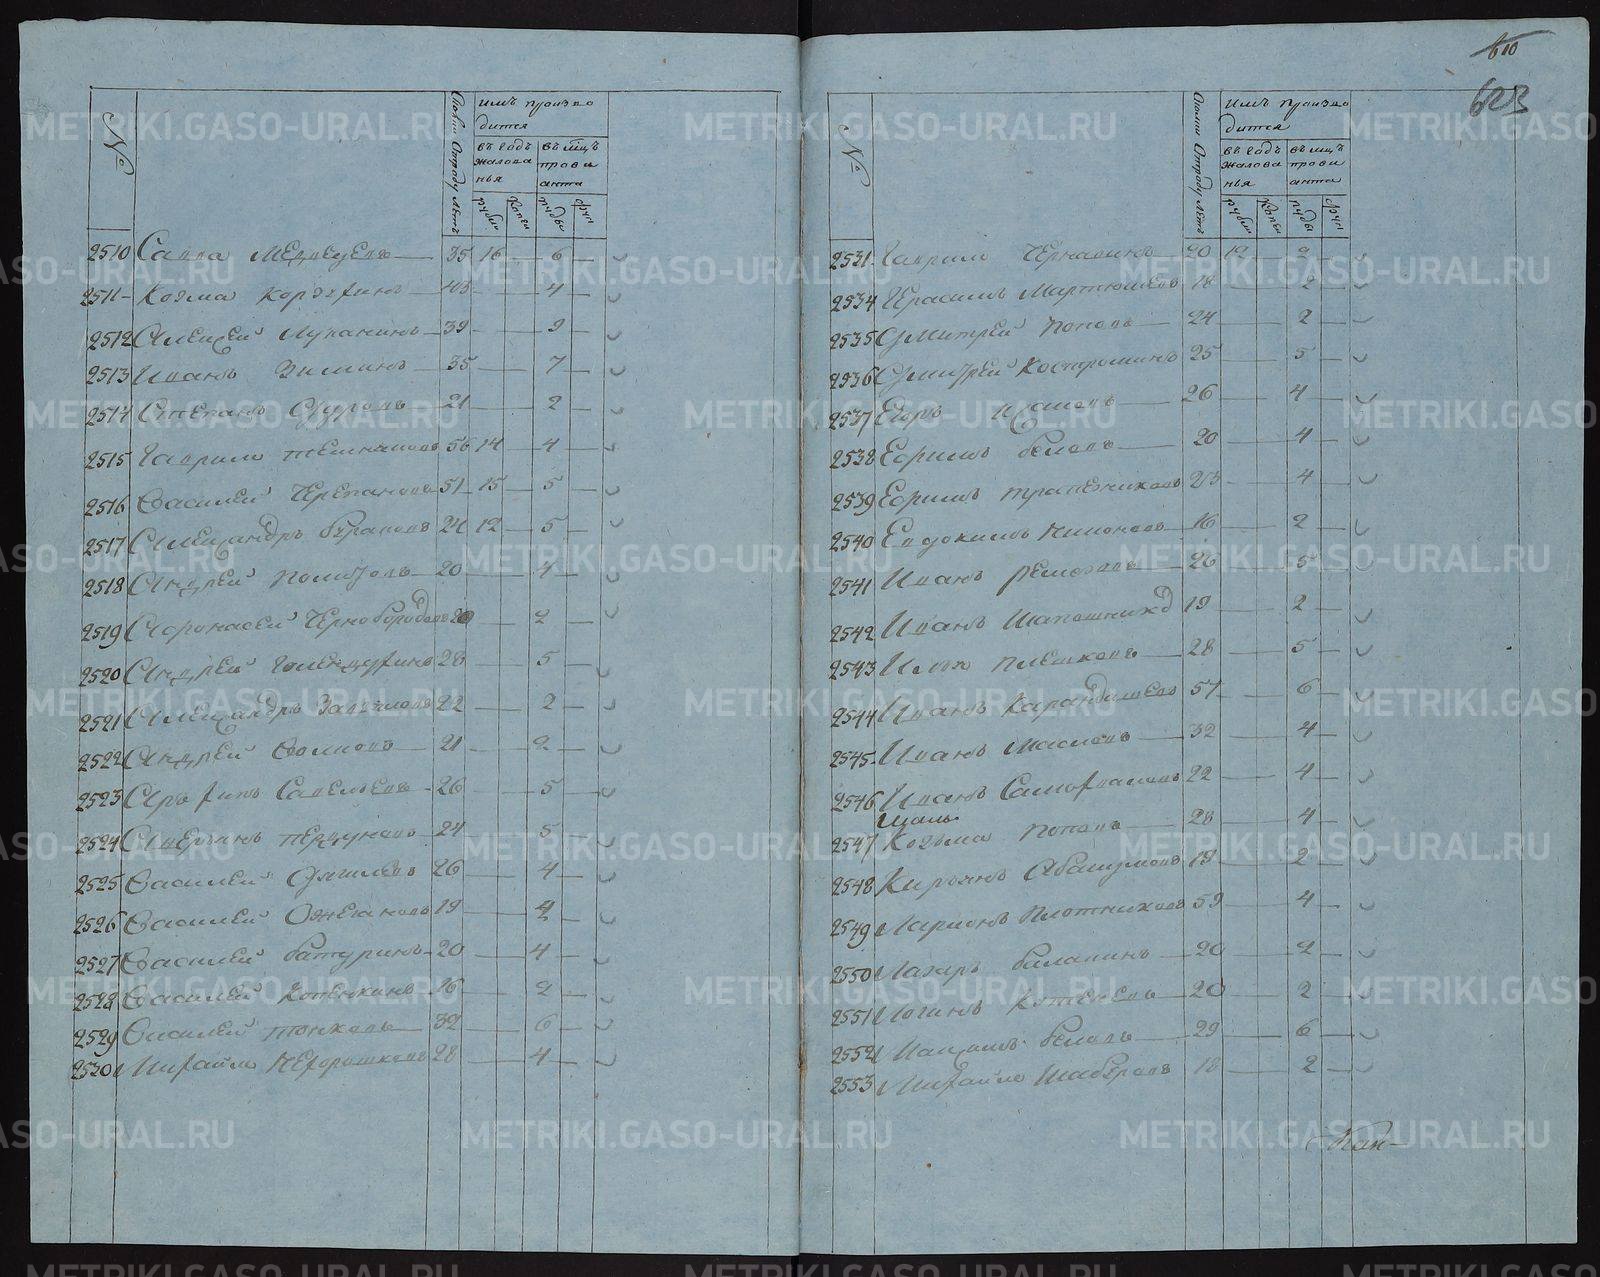 610
623
№
Своему Отроду Летъ
имъ произво
дится
въ годъ
жалова
нья
въ мцъ
прови
анта
рубли
Копеи
пуды
фун
2510 Савва Медведевъ 35 16 6
2511 Козма Корэхинъ 43 4
2512 Алексей Луканинъ 39 9
2513 Иванъ Зиминъ 35 7
2514 Степанъ Суровъ 21 2
2515 Гаврило 56 14 4
2516 Василей Черепановъ 51 15 5
2517 Александръ Бурановъ 24 12 5
2518 Андрей 20 4
2519 Афонасей Чернобородовъ 20 2
2520 Андрей Голендухинъ 28 5
2521 Александръ Завьяловъ 22 2
2522 Андрей Волковъ 21 2
2523 Архипъ Савельевъ 26 5
2524 Аверьянъ Пердуновъ 24 5
2525 Василей 26 4
2526 Василей Ожегановъ 19 2
2527 Василей батуринъ 20 4
2528 Василей Котенкинъ 16 2
2529 Василей тонковъ 32 6
2530 Михайло Нехорошковъ 28 4
№
Своему Отроду Летъ
имъ произво
дится
въ годъ
жалова
нья
въ мцъ
прови
анта
рубли
Копеи
пуды
фун
2531 Гаврило Чернавинъ 20 12 2
2534 Герасимъ Мартюшевъ 18 2
2535 Дмитрей Поповъ 24 2
2536 Дмитрей Костроминъ 25 5
2537 Егоръ Исаковъ 26 4
2538 Ефимъ беловъ 20 4
2539 Ефимъ трапезниковъ 23 4
2540 Евдокимъ Никоновъ 16 2
2541 Иванъ ремезовъ 26 5
2542 Иванъ Шапошниковъ 19 2
2543 Илья плешковъ 28 5
2544 Иванъ Карандашевъ 57 6
2545 Иванъ Масловъ 32 4
2546 Иванъ Самохваловъ 22 4
2547 Козьма Поповъ 28 4
2548 Кирьянъ Абакумовъ 19 2
2549 Ларионъ Плотниковъ 59 4
2550 Лазарь балакинъ 20 2
2551 Логинъ Котеневъ 20 2
2552 Максимъ беловъ 29 6
2553 Михайло Шаберовъ 18 2